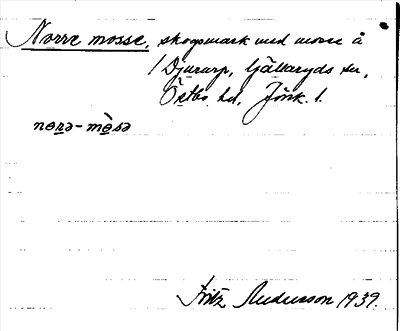 Norre mosse, skogsmark med mosse å
/ Djurarp, Gällaryds sn,
Östbo hd, Jönk. l.
nore-mòsə
Fritz Andersson 1939.